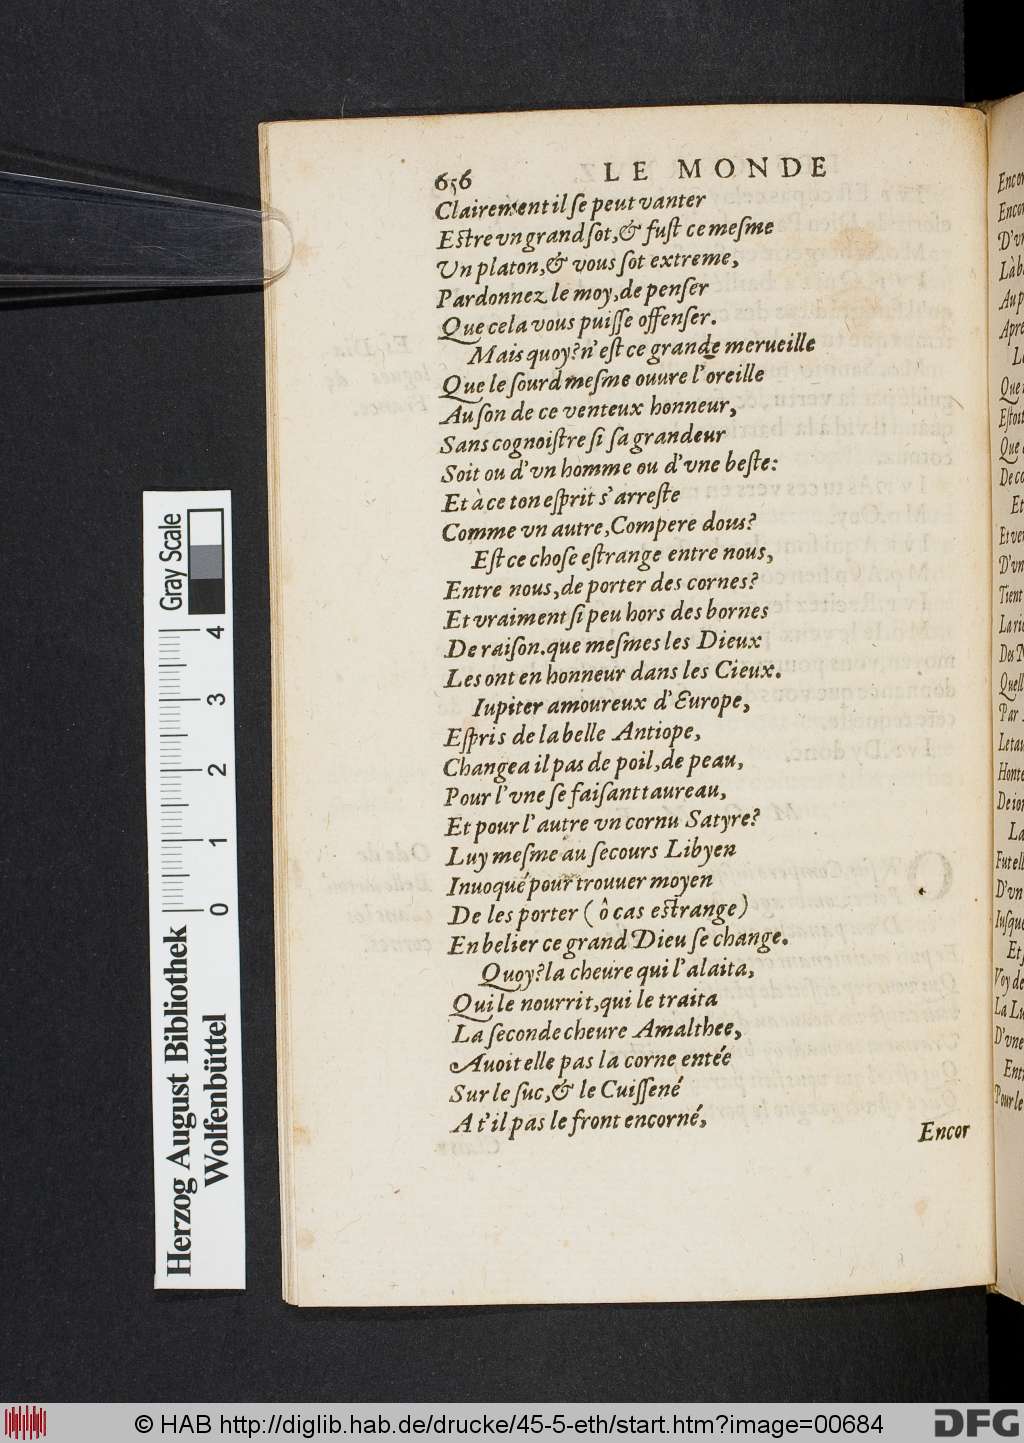 656 LE MONDE
Clairement il ſe peut vanter
Eſtre vn grand ſot, & fuſt ce meſme
Un platon, & vous ſot extreme,
Pardonnez le moy, de penſer
Que cela vous puiſſe offenſer.
Mais quoy? n'eſt ce grande merueille
Que le ſourd meſme ouure l'oreille
Au ſon de ce venteux honneur,
Sans cognoiſtre ſi ſa grandeur
Soit ou d'vn homme ou d'vne beſte:
Et à ce ton eſprit s'arreſte
Comme vn autre, Compere dous?
Eſt ce choſe eſtrange entre nous,
Entre nous, de porter des cornes?
Et vraiment ſi peu hors des bornes
De raiſon. que meſmes les Dieux
Les ont en honneur dans les Cieux.
Iupiter amoureux d'Europe,
Eſpris de la belle Antiope,
Changea il pas de poil, de peau,
Pour l'vne ſe faiſant taureau,
Et pour l'autre vn cornu Satyre?
Luy meſme au ſecours Libyen
Inuoqué pour trouuer moyen
De les porter (ô cas eſtrange)
En belier ce grand Dieu ſe change.
Quoy? la cheure qui l'alaita,
Qui le nourrit, qui le traita
La ſeconde cheure Amalthee,
Auoit elle pas la corne entée
Sur le ſuc, & le Cuiſſené
A t'il pas le front encorné,
Encor
Encor
Encor
D'vn
Là b
Au p
Apre
Le
Que
Eſtoit
Que
De co
Et
Et ver
D'vn
Tient
La ric
Des N
Quell
Par
Le tau
Honte
De ion
La
Fut ell
D'vn
Iuſque
Et
Voy de
La Lu
D'vne
Ent
Pour le
Gray Scale
0 1 2 3 4
Herzog August Bibliothek
Wolfenbüttel
© HAB http://diglib.hab.de/drucke/45-5-eth/start.htm?image=00684
DFG